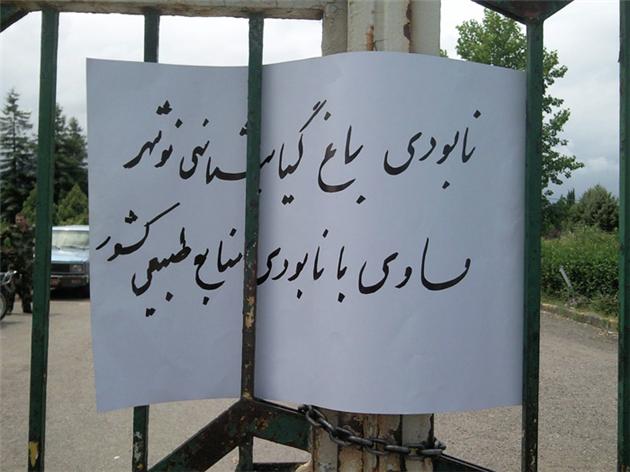 نابودی باغ گیاهشناسی نوشهر
مساوی با نابودی منابع طبیعی کشور